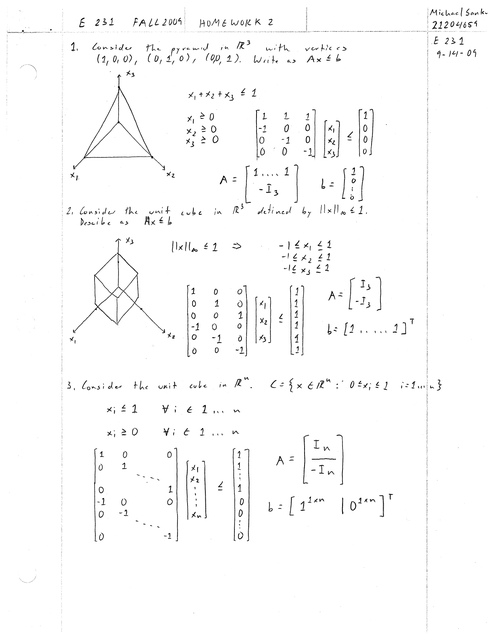 E 231 FALL 2009 HOMEWORK 2
21204659
E 231
9-14-09
1. Consider the pyramid in ℝ³ with vertices
(1,0,0), (0,1,0), (0,0,1). Write as Ax ≤ b
x₃
x₁
x₂
x₁+x₂+x₃ ≤ 1
x₁ ≥ 0
x₂ ≥ 0
x₃ ≥ 0
[1 1 1; -1 0 0; 0 -1 0; 0 0 -1] [x₁; x₂; x₃] ≤ [1; 0; 0; 0]
A = [1....1; -I₃] b = [1; 0; ⋮; 0]
2. Consider the unit cube in ℝ³ defined by ||x||∞ ≤ 1.
Describe as Ax ≤ b
x₃
x₁
x₂
||x||∞ ≤ 1 ⇒ -1 ≤ x₁ ≤ 1
-1 ≤ x₂ ≤ 1
-1 ≤ x₃ ≤ 1
[1 0 0; 0 1 0; 0 0 1; -1 0 0; 0 -1 0; 0 0 -1] [x₁; x₂; x₃] ≤ [1; 1; 1; 1; 1; 1]
A = [I₃; -I₃]
b = [1.....1]ᵀ
3. Consider the unit cube in ℝⁿ. C = {x ∈ ℝⁿ : 0 ≤ xᵢ ≤ 1 i=1...n}
xᵢ ≤ 1 ∀ i ∈ 1...n
xᵢ ≥ 0 ∀ i ∈ 1...n
[1 0 0; 0 1; .....; 0 1; -1 0 0; 0 -1; .....; 0 -1] [x₁; x₂; ⋮; xₙ] ≤ [1; 1; ⋮; 1; 0; 0; ⋮; 0]
A = [Iₙ; -Iₙ]
b = [1¹ˣⁿ | 0¹ˣⁿ]ᵀ